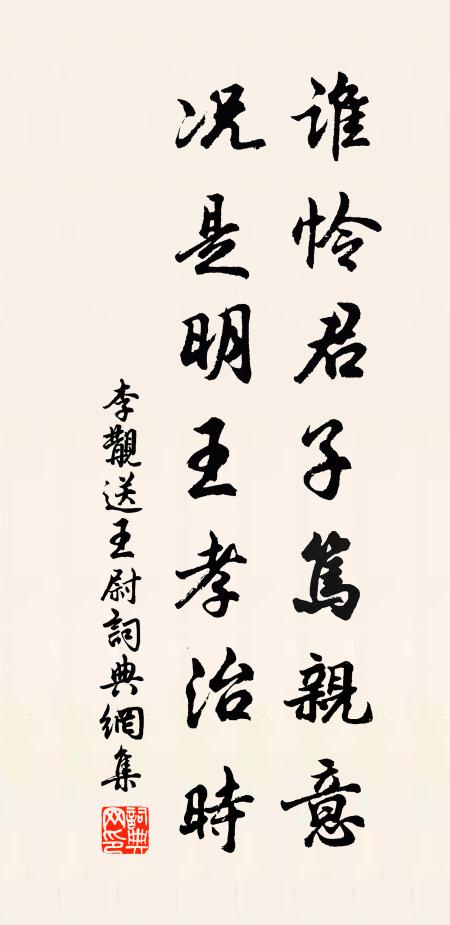 谁怜君子篤親意
况是明王孝治時
李覯送王尉詞典網集
詞典網印